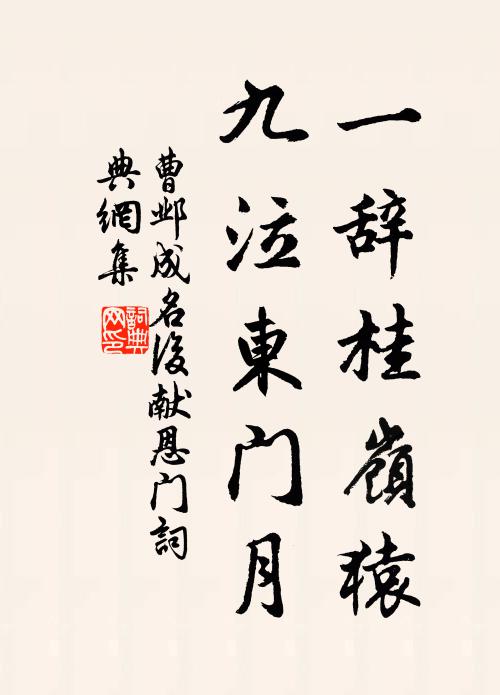 一辞桂嶺猿
九泣東门月
曹邺成名後献恩门詞
典網集
詞典
网印